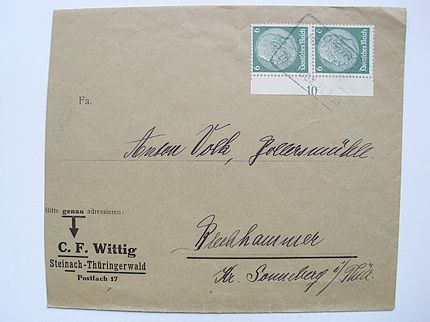 6 Deutsches Reich 6
6 Deutsches Reich 6
10
Fa.
Anton Volk, Gollersmühle.
Bitte genau adressieren:
C. F. Wittig
Steinach-Thüringerwald
Postfach 17
Blechhammer
Kr. Sonneberg i/Thür.